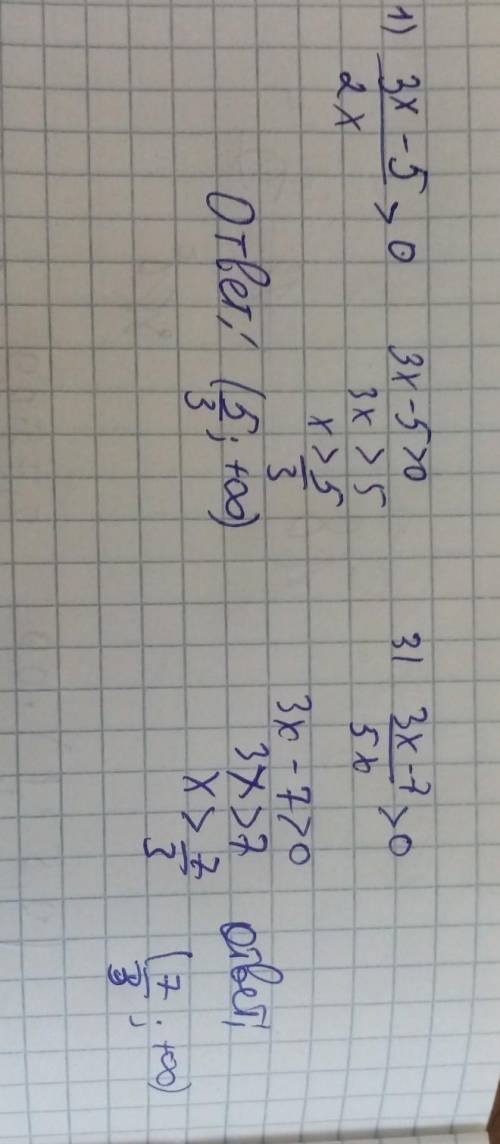 1) (3x - 5)/(2x) > 0
3x - 5 > 0
3x > 5
x > 5/3
Ответ: (5/3; +∞)
3) (3x - 7)/(5x) > 0
3x - 7 > 0
3x > 7
x > 7/3
Ответ:
(7/3; +∞)